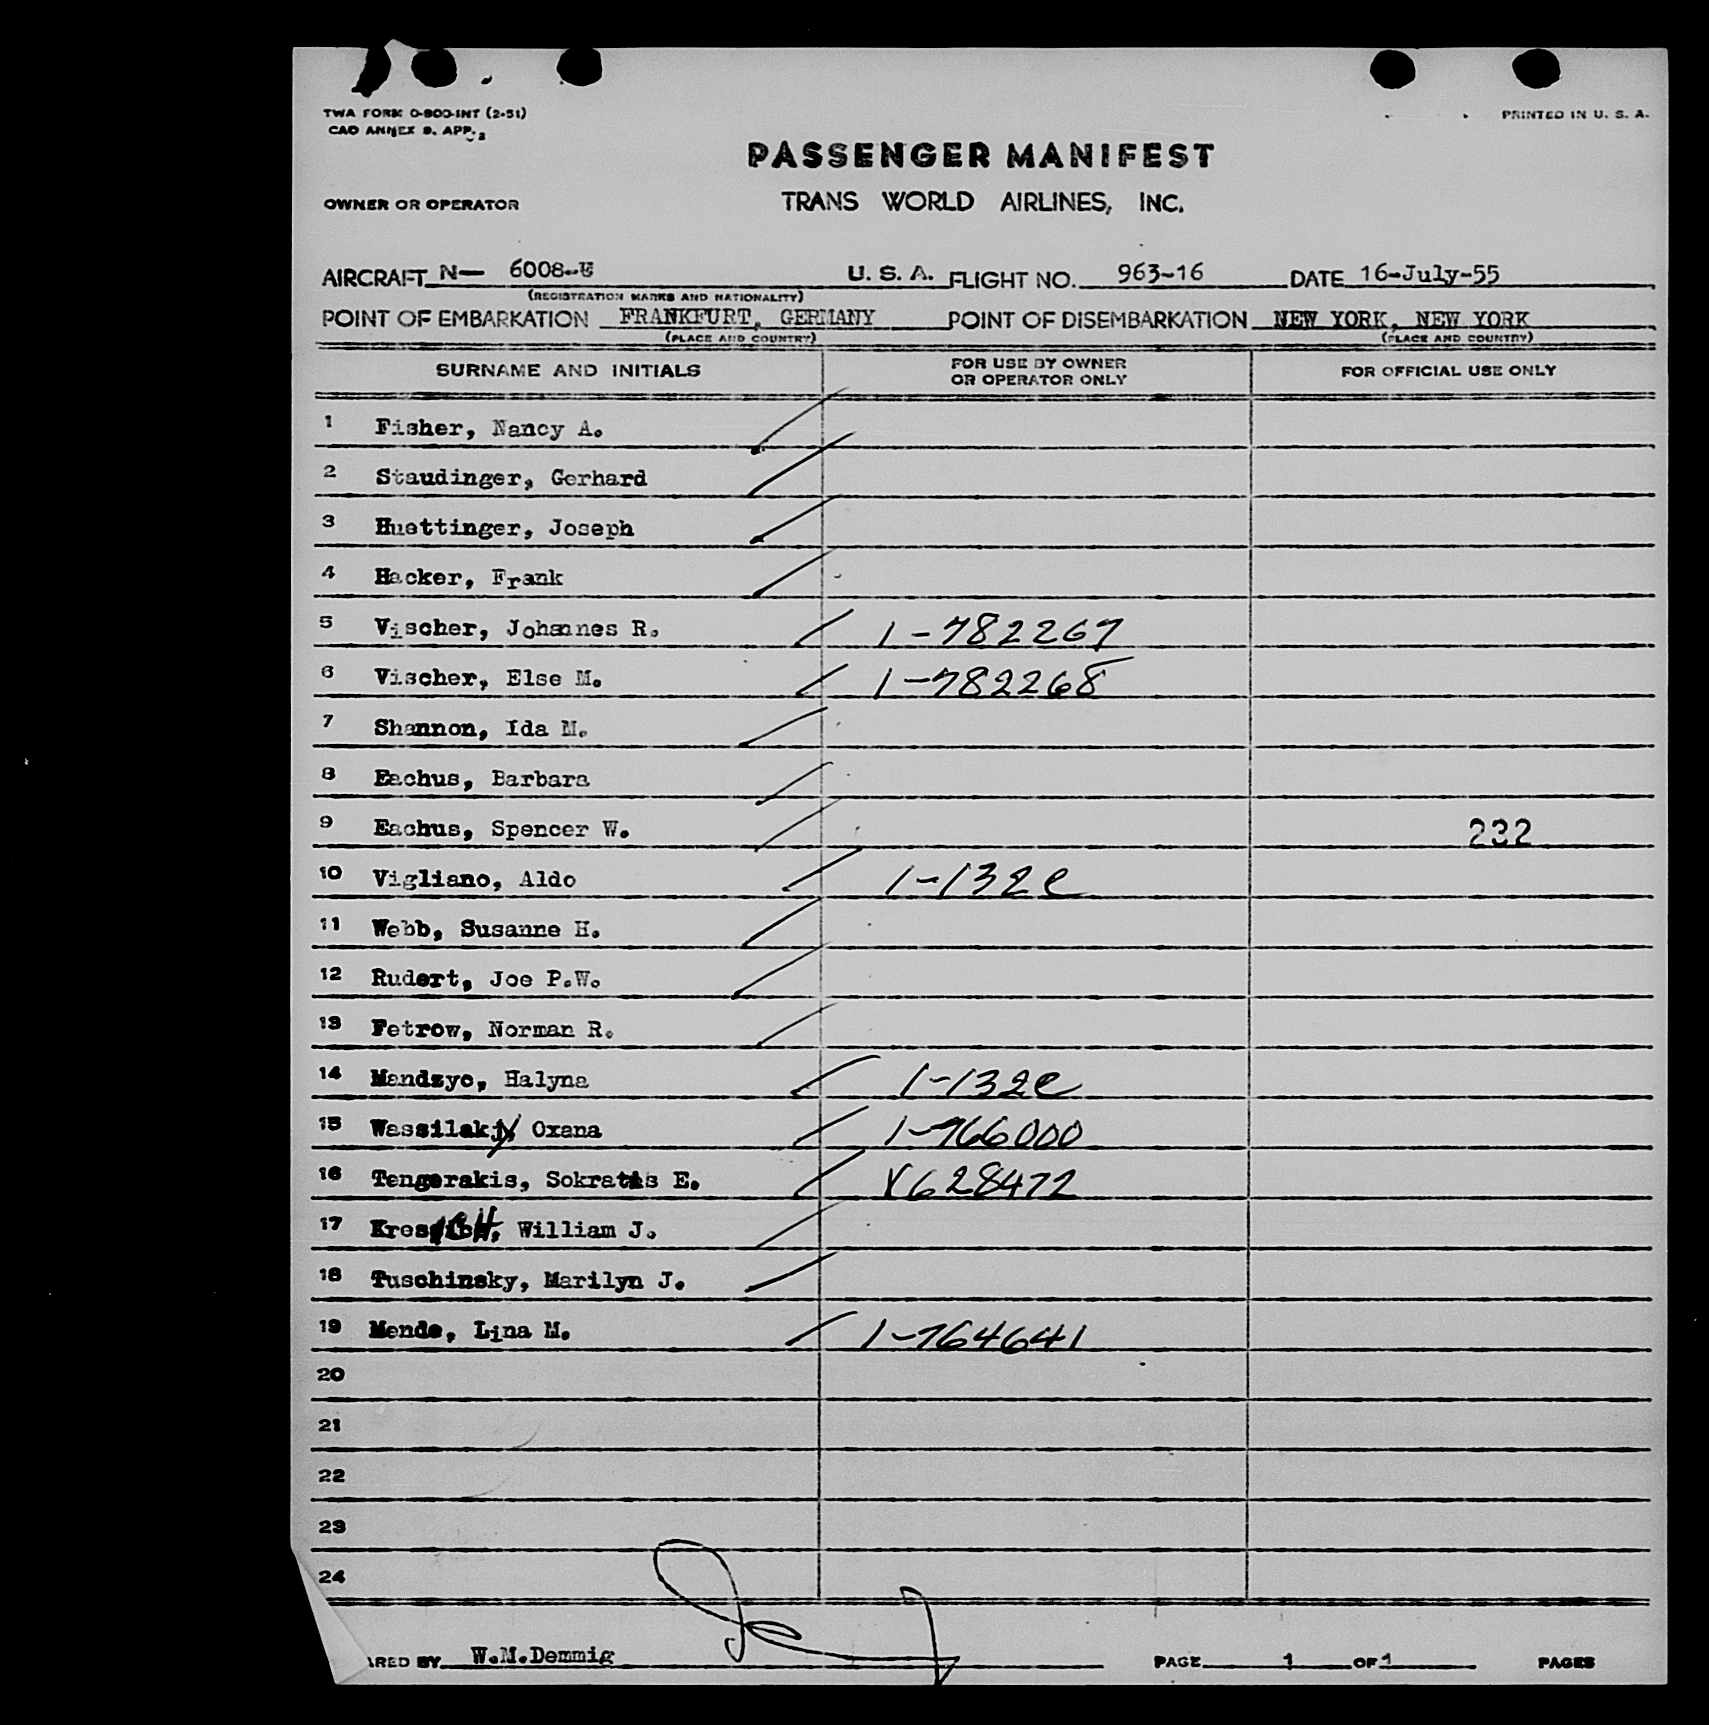 TWA FORM O-800-INT (2-51)
CAO ANNEX 9. APP. 2
PRINTED IN U. S. A.
PASSENGER MANIFEST
OWNER OR OPERATOR
TRANS WORLD AIRLINES, INC.
AIRCRAFT N— 6008-E U. S. A. FLIGHT NO. 963-16 DATE 16-July-55
(REGISTRATION MARKS AND NATIONALITY)
POINT OF EMBARKATION FRANKFURT, GERMANY POINT OF DISEMBARKATION NEW YORK, NEW YORK
(PLACE AND COUNTRY) (PLACE AND COUNTRY)
SURNAME AND INITIALS FOR USE BY OWNER OR OPERATOR ONLY FOR OFFICIAL USE ONLY
1 Fisher, Nancy A.
2 Staudinger, Gerhard
3 Huettinger, Joseph
4 Hacker, Frank
5 Vischer, Johannes R. 1-782267
6 Vischer, Else M. 1-782268
7 Shannon, Ida M.
8 Eachus, Barbara
9 Eachus, Spencer W. 232
10 Vigliano, Aldo 1-132e
11 Webb, Susanne H.
12 Rudert, Joe P.W.
13 Fetrow, Norman R.
14 Mandzyc, Halyna 1-132e
15 Wassilaky, Oxana 1-766000
16 Tengerakis, Sokratis E. V628472
17 KressICH, William J.
18 Tuschinsky, Marilyn J.
19 Mende, Lina M. 1-764641
20
21
22
23
24
ARED BY W.M.Demmig PAGE 1 OF 1 PAGES